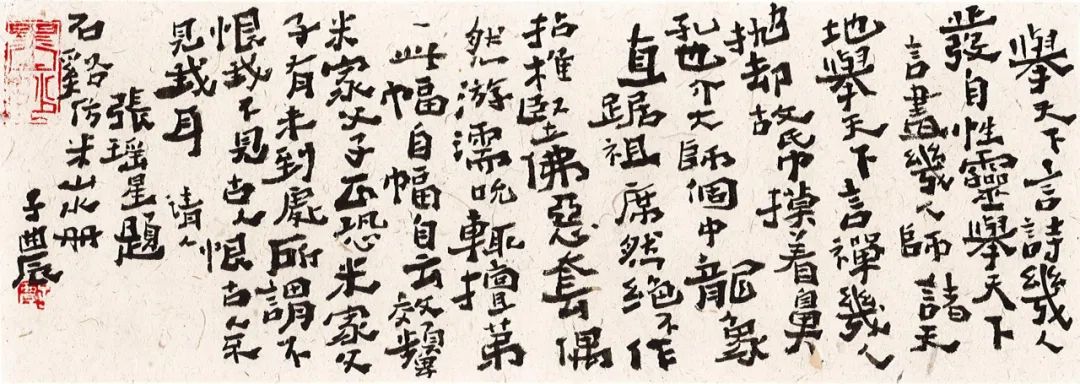 舉天下言詩幾人
發自性靈舉天下
言畫幾人師諸天
地舉天下言禪幾人
抛却故帋摸着鼻
孔也介大師個中龍象
直踞祖席然絕不作
拈推竪佛惡套偶
然游濡吮輒擅第
一此幅自幅自云效顰
米家父子正恐米家父
子有未到處所謂不
恨我不見古人恨古人不
見我耳 清人
張瑤星題
石谿仿米山水册
子曲